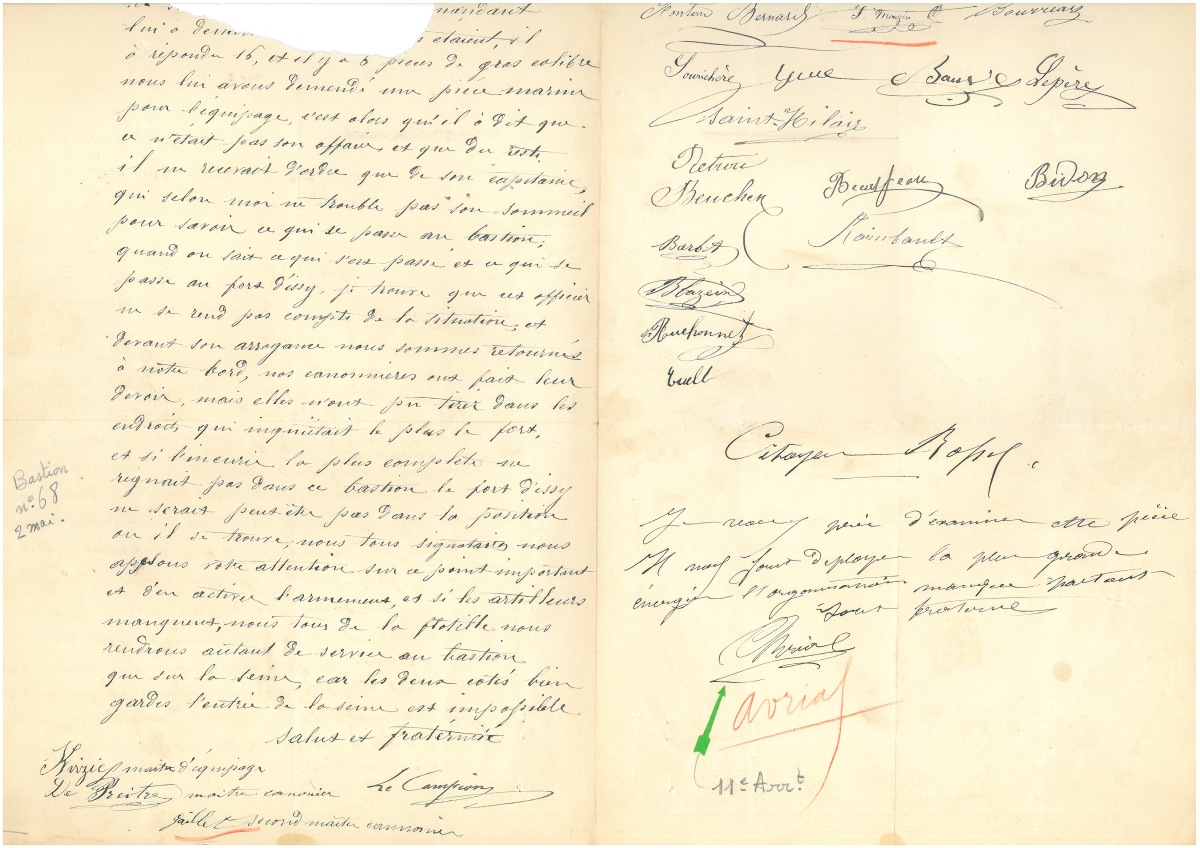 mandant
lui à étaient, il
à répondu 16, et il y a 6 pieces de gros calibre
nous lui avons demendé une piéce marine
pour l'equipage, s'est alors qu'il à dit que
ce n'était pas son affaire, et que du reste,
il ne recevait d'ordre que de son capitaine,
qui selon moi ne trouble pas son sommeil
pour savoir ce qui se passe au bastion,
quand on sait ce qui s'est passe et ce qui se
passe au fort d'issy, je trouve que cet officier
ne se rend pas compte de la situation, et
devant son arrogance nous sommes retournés
à notre bord, nos canonnieres ont fait leur
devoir, mais elles n'ont pu tirer dans les
endroits qui inquiétait le plus le fort,
et si l'incurie la plus complète ne
régnait pas dans ce bastion le fort d'issy
ne serait peut être pas dans la position
ou il se trouve, nous tous signataires nous
appelons votre attention sur ce point important
et d'en activer l'armement, et si les artilleurs
manquent, nous tous de la flotille nous
rendrons autant de service au bastion
que sur la seine, car les deux cotés bien
gardés l'entrée de la seine est impossible
salut et fraternité
Bastion
n° 68
2 mai.
maitre d'équipage
De Preitre maitre canonier Le Campion
second maitre cannonier
Bernard
Lepère
Saint-Hilaire
Beuchen
Bidon
Barbet Raimbault
Blazein
Ruchonnet
Citoyen Rossel
Je vous prie d'examiner cette pièce
Il nous faut deployer la plus grande
énergie l'organisation manque partout
Tout fraternel
Avrial
avrial
11e Arrt.